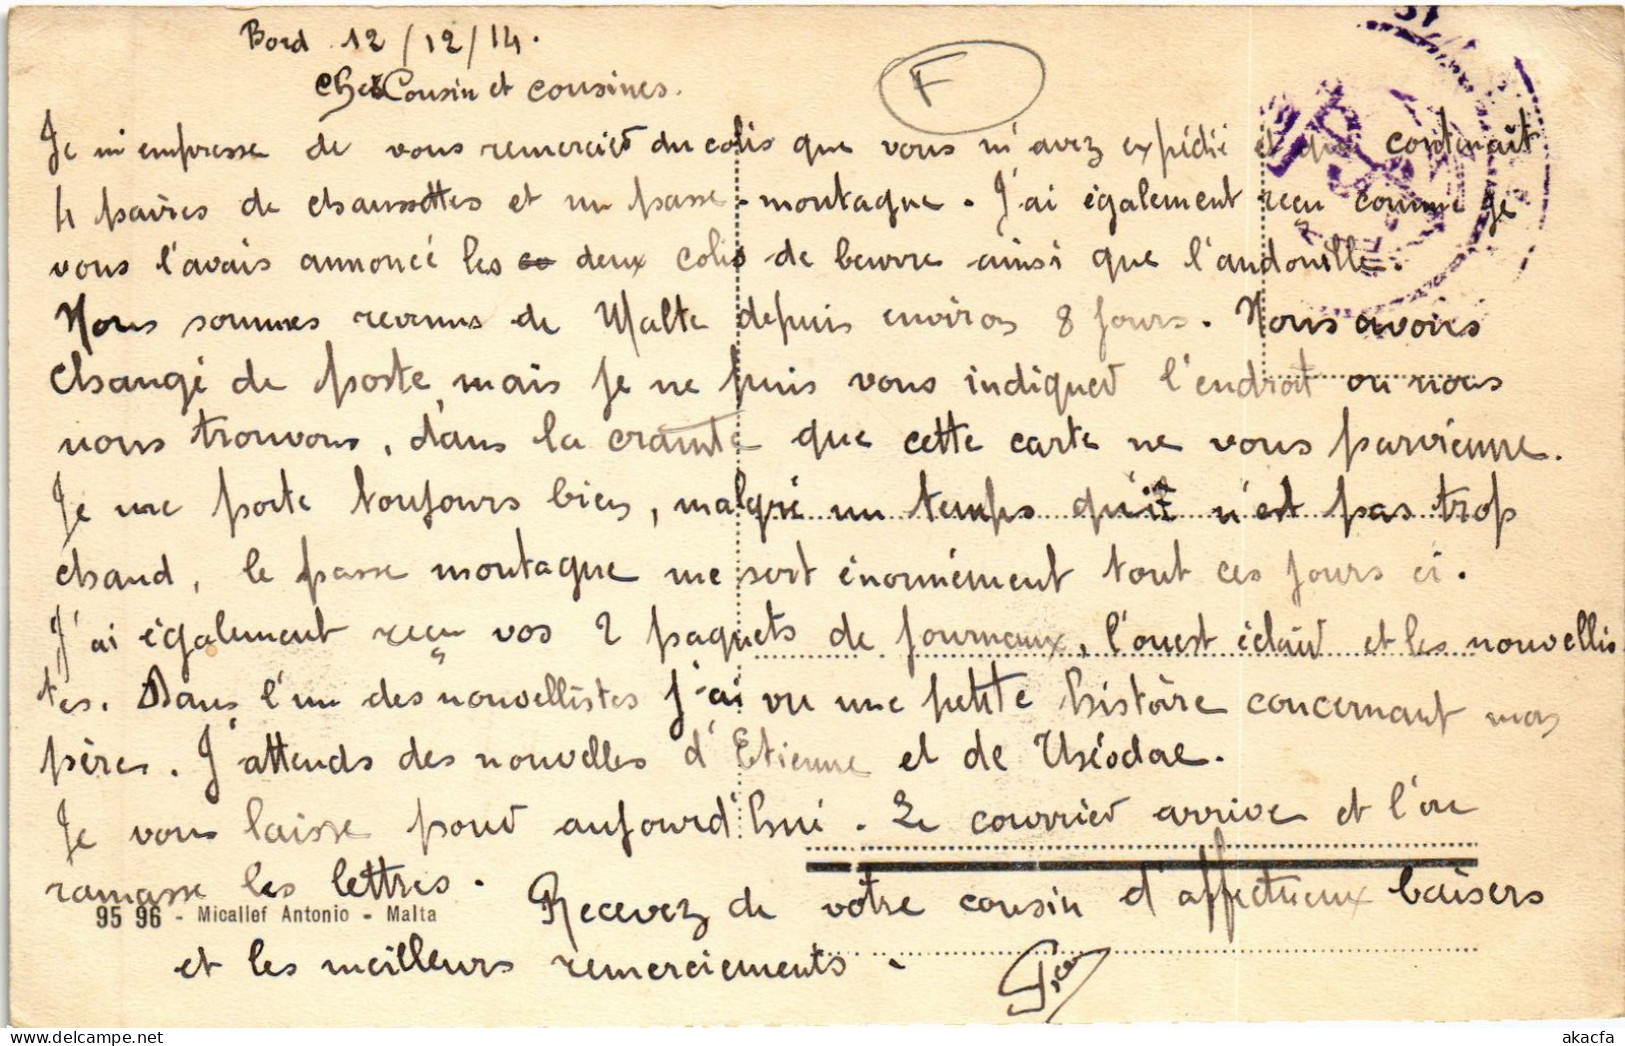 Bord 12/12/14.
F
Chers Cousin et cousines.
Je m'empresse de vous remercier du colis que vous m'avez expédié et qui contenait
4 paires de chaussettes et un passe-montagne. J'ai également reçu comme je
vous l'avais annoncé les deux colis de beurre ainsi que l'andouille.
Nous sommes revenus de Malte depuis environ 8 jours. Nous avons
changé de poste, mais je ne puis vous indiquer l'endroit ou nous
nous trouvons, dans la crainte que cette carte ne vous parvienne.
Je me porte toujours bien, malgré un temps qui n'est pas trop
chaud, le passe montagne me sert énormément tout ces jours ci.
J'ai également reçu vos 2 paquets de journaux, l'ouest éclair et les nouvellis
tes. Dans l'un des nouvellistes j'ai vu une petite histoire concernant mon
père. J'attends des nouvelles d'Etienne et de Théodore.
Je vous laisse pour aujourd'hui. Le courrier arrive et l'on
ramasse les lettres. Recevez de votre cousin d'affectueux baisers
95 96 - Micallef Antonio - Malta
et les meilleurs remerciements.
akacfa